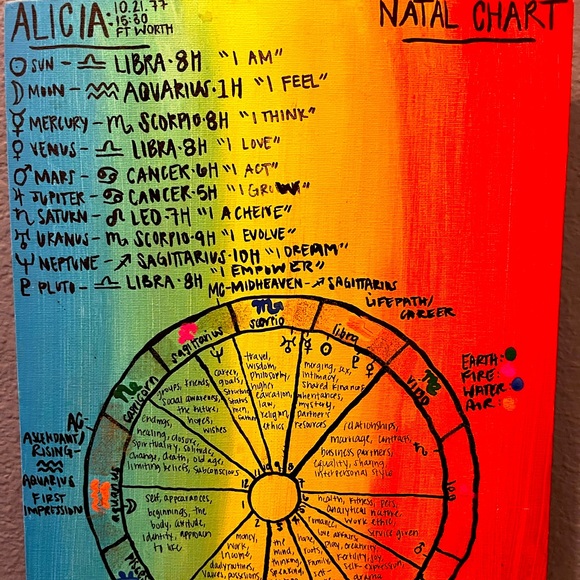 ALICIA: 10.21.77
15:30
FT WORTH
NATAL CHART
☉ SUN - ♎ LIBRA · 8H "I AM"
☽ MOON - ♒ AQUARIUS · 1H "I FEEL"
☿ MERCURY - ♏ SCORPIO · 8H "I THINK"
♀ VENUS - ♎ LIBRA · 8H "I LOVE"
♂ MARS - ♋ CANCER · 6H "I ACT"
♃ JUPITER - ♋ CANCER · 5H "I GROW"
♄ SATURN - ♌ LEO · 7H "I ACHEIVE"
♅ URANUS - ♏ SCORPIO · 9H "I EVOLVE"
♆ NEPTUNE - ♐ SAGITTARIUS · 10H "I DREAM"
♇ PLUTO - ♎ LIBRA · 8H "I EMPOWER"
MC-MIDHEAVEN - ♐ SAGITTARIUS
LIFEPATH/
CAREER
EARTH:
FIRE:
WATER:
AIR:
AC
ASCENDANT/
RISING-
♒
AQUARIUS
FIRST
IMPRESSION
CAPRICORN
sagittarius
scorpio
libra
VIRGO
leo
aquarius
groups, friends,
social awareness,
the future,
hopes,
wishes
career,
goals,
status,
men,
travel,
wisdom,
philosophy,
higher
education,
law,
religion,
ethics
merging, sex,
intimacy,
shared finances
inheritances,
mystery,
partner's
resources
relationships,
marriage, contracts,
business partners,
equality, sharing,
interpersonal style
endings,
healing, closure,
spirituality, solitude,
change, death, old age,
limiting beliefs, subconscious
self, appearances,
beginnings, the
body, attitude,
identity, approach
to life
health, fitness, pets,
analytical nature,
work ethic,
service given
romance,
love affairs,
play, creativity,
Fertility, joy,
self-expression,
drama
money,
work,
income,
daily routines,
values, possessions,
mind,
thinking,
speaking,
home,
roots,
Family,
self-
12
11
10
9
8
7
1
2
3
4
5
6